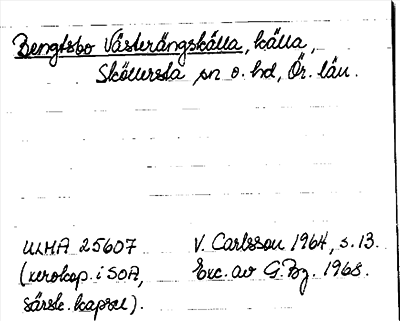 Bengtsbo Västerängskälla, källa,
Sköllersta sn o. hd, Ör. län.
ULMA 25607 V. Carlsson 1964, s. 13.
(xerokop. i SOA, Exc. av G. Bg. 1968.
särsk. kapsel).